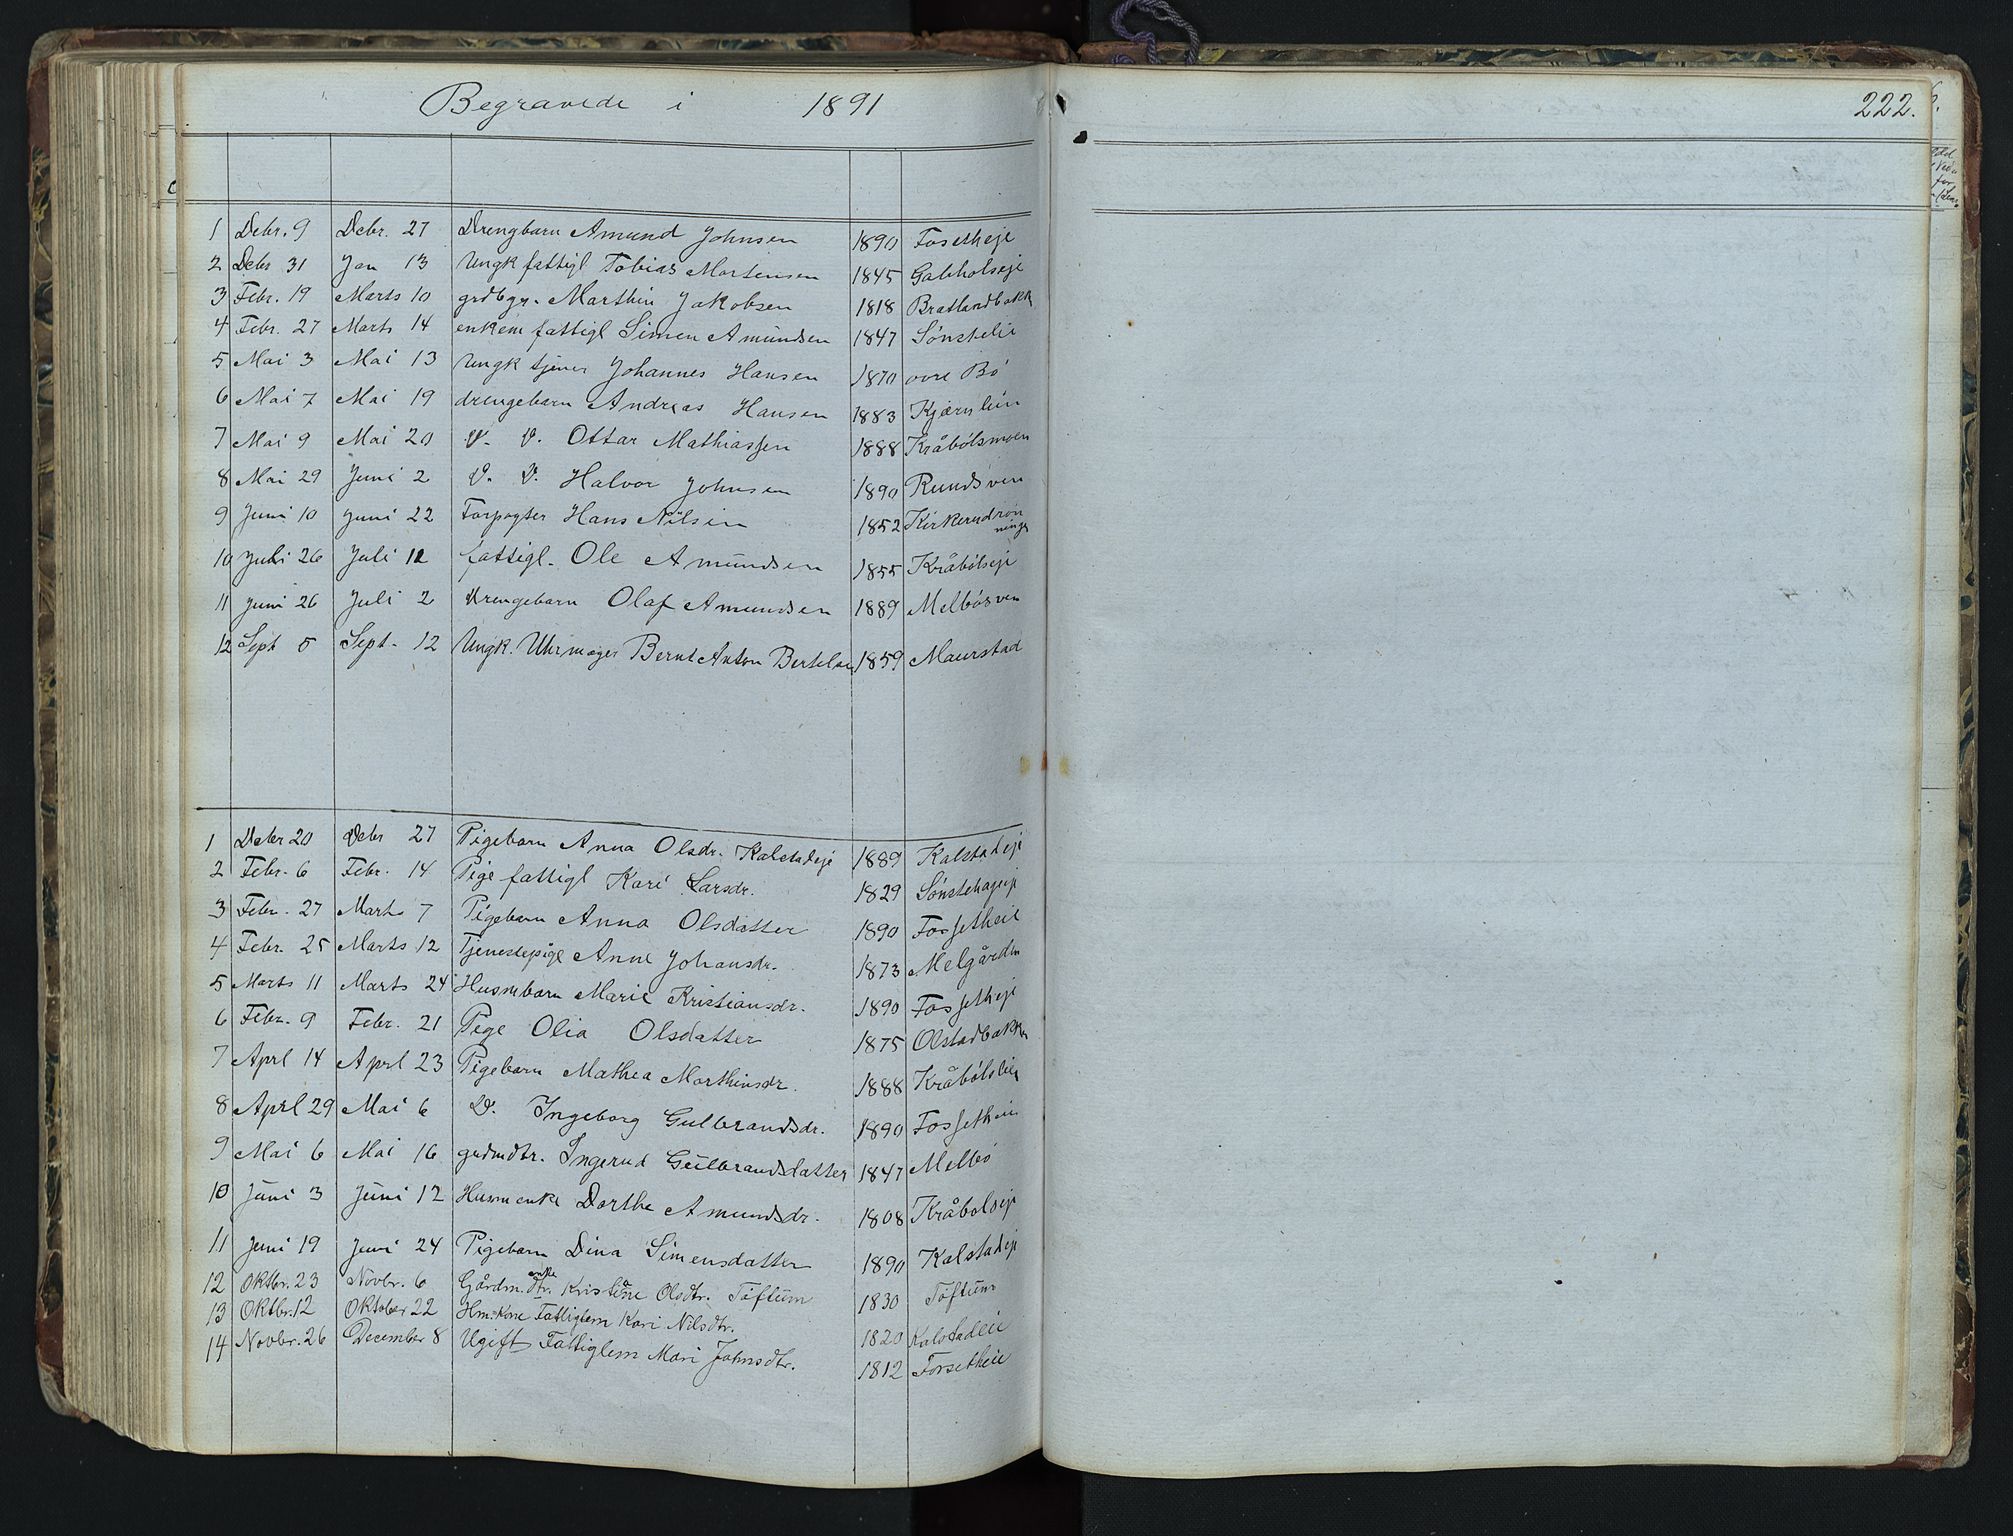 Begravede i 1891
222.
1 Debr. 9 Debr. 27 Drengbarn Amund Johnsen 1890 Fosetheje
2 Debr 31 Jan 13 Ungk fattigl Tobias Mortensen 1845
3 Febr. 19 Marts 10 grdbgr. Marthin Jakobsen 1818 Bratlandbakk
4 Febr. 27 Marts 14 enkem fattigl Simen Amundsen 1847 Sønstelie
5 Mai 3 Mai 13 Ungk tjener Johannes Hansen 1870 øvre Bø
6 Mai 7 Mai 19 drengebarn Andreas Hansen 1883 Kjærnlien
7 Mai 9 Mai 20 D. D. Ottar Mathiassen 1888 Kråbølsmoen
8 Mai 29 Juni 2 D. D. Halvor Johnsen 1890 Rundsven
9 Juni 10 Juni 22 Forpagter Hans Nilsen 1852 Kirkerudron
ninge
10 Juli 26 Juli 12 fattigl. Ole Amundsen 1855 Kråbølseje
11 Juni 26 Juli 2 Drengebarn Olaf Amundsen 1889 Melbøsven
12 Sept 5 Sept. 12 Ungk. Uhrmager Bernt Anton Bertelsen 1859 Maurstad
1 Debr 20 Debr 27 Pigebarn Anna Olsdr. Kalstadeje 1889 Kalstadeje
2 Febr. 6 Febr. 14 Pige fattigl Kari Larsdr. 1829 Sønstehageje
3 Febr. 27 Marts 7 Pigebarn Anna Olsdatter 1890 Fossetheie
4 Febr. 25 Marts 12 Tjenestepige Anne Johansdr. 1873 Melgården
5 Marts 11 Marts 24 Husmbarn Marie Kristiansdr. 1890 Fossetheje
6 Febr. 9 Febr. 21 Pige Olia Olsdatter 1875 Olstadbakken
7 Aprl 14 Aprl 23 Pigebarn Mathea Marthinsdr. 1888 Kråbølslien
8 Aprl 29 Mai 6 D. Ingeborg Gulbrandsdr. 1890 Fossetheie
9 Mai 6 Mai 16 grdmdtr. Ingerud Gulbrandsdatter 1847 Melbø
10 Juni 3 Juni 12 Husmenke Dorthe Amundsdr. 1808 Kråbølseje
11 Juni 19 Juni 24 Pigebarn Dina Simensdatter 1890 Kalstadeje
enke
12 Oktbr. 23 Novbr. 6 Gårdm. dtr. Kristine Olsdtr. Toftum 1830 Toftum
13 Oktbr. 12 Oktober 22 Hm. Kone Fattiglem Kari Nilsdtr. 1820 Kalstadeie
14 Novbr. 26 December 8 Ugift Fattiglem Mari Johnsdtr. 1812 Forsetheie